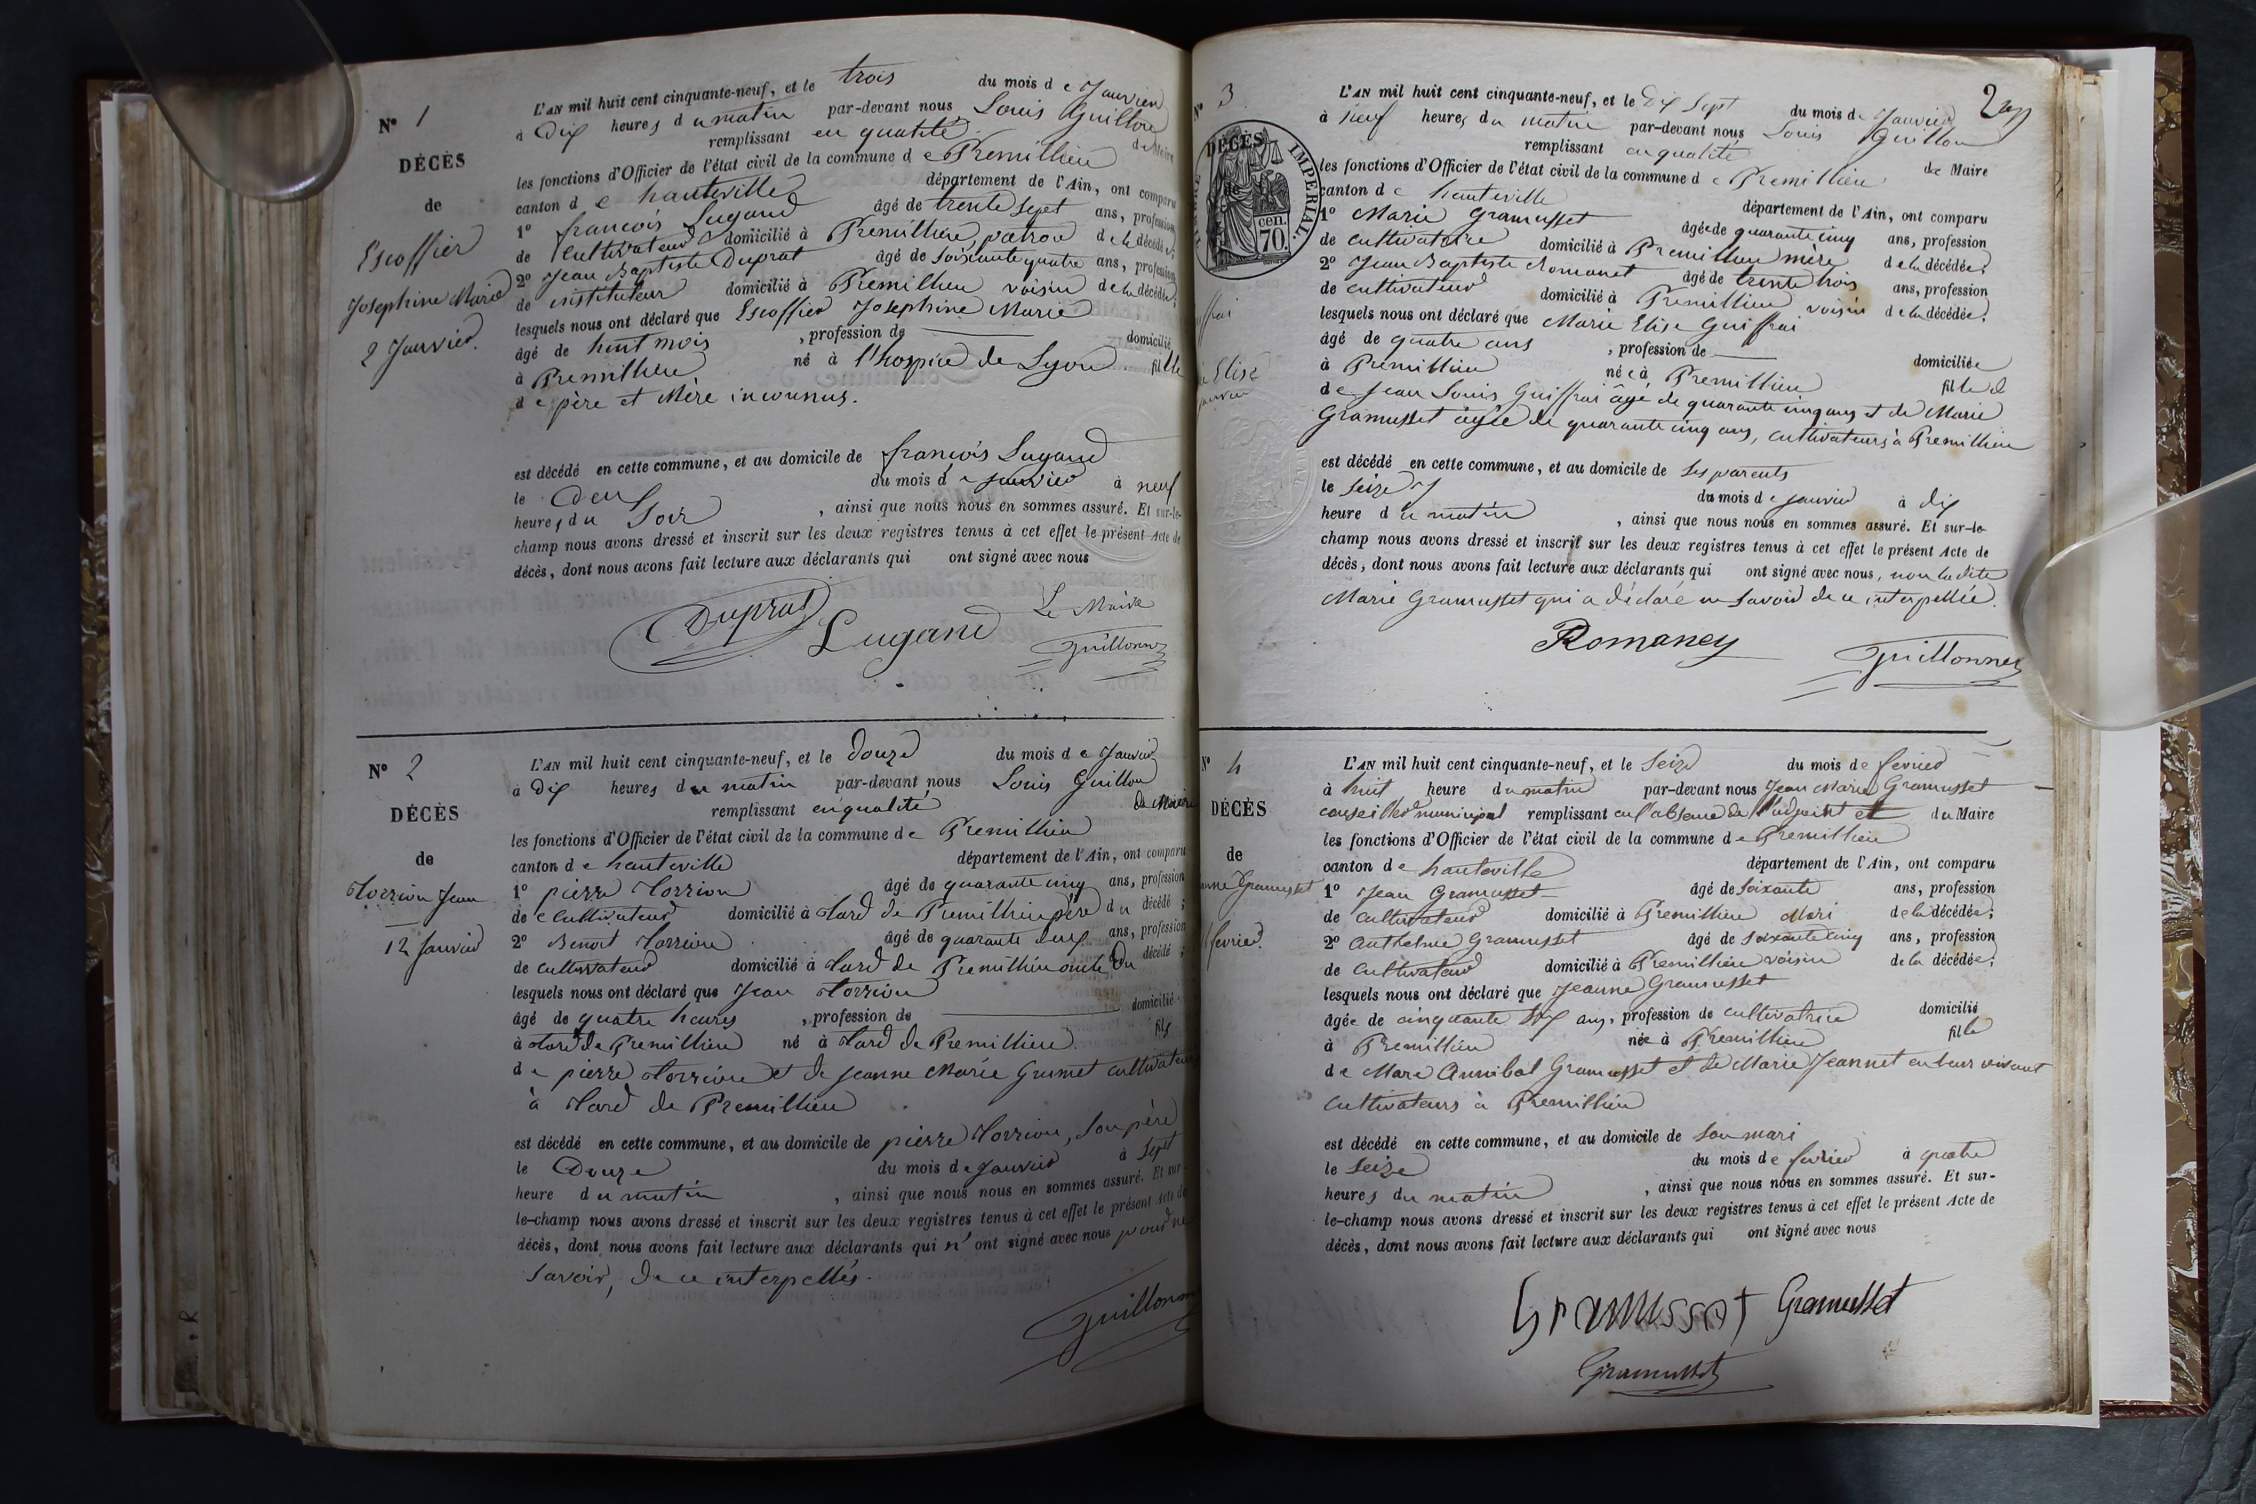 N° 1
DÉCÈS
de
Escoffier
Josephine Marie
2 Janvier.
L'AN mil huit cent cinquante-neuf, et le trois du mois de Janvier
à Dix heures du matin par-devant nous Louis Guillon
remplissant en qualité de Maire
les fonctions d'Officier de l'état civil de la commune de Premillieu
canton de hauteville département de l'Ain, ont comparu
1° françois Lugand âgé de trente sept ans, profession
de Cultivateur domicilié à Premillieu, patron de la décédée;
2° Jean Baptiste Duprat âgé de soixante quatre ans, profession
de instituteur domicilié à Premillieu voisin de la décédée;
lesquels nous ont déclaré que Escoffier Josephine Marie
âgé de huit mois, profession de domicilié
à Premillieu né à l'hospice de Lyon fille
de père et Mère inconnus.
est décédé en cette commune, et au domicile de françois Lugand
le Deux du mois de janvier à neuf
heures du Soir, ainsi que nous nous en sommes assuré. Et sur-le-
champ nous avons dressé et inscrit sur les deux registres tenus à cet effet le présent Acte de
décès, dont nous avons fait lecture aux déclarants qui ont signé avec nous
Duprat Lugand Le Maire
Guillonnet
N° 2
DÉCÈS
de
Jean
12 Janvier
L'AN mil huit cent cinquante-neuf, et le douze du mois de Janvier
à Dix heures du matin par-devant nous Louis Guillon
remplissant en qualité de Maire
les fonctions d'Officier de l'état civil de la commune de Premillieu
canton de hauteville département de l'Ain, ont comparu
1° pierre âgé de quarante cinq ans, profession
de Cultivateur domicilié à de Premillieu père du décédé;
2° Benoit âgé de quarante deux ans, profession
de cultivateur domicilié à de Premillieu oncle Du décédé;
lesquels nous ont déclaré que Jean
âgé de quatre heures, profession de domicilié
à de Premillieu né à de Premillieu fils
de pierre et de jeanne Marie Grumet cultivateurs
à de Premillieu
est décédé en cette commune, et au domicile de pierre, son père
le Douze du mois de janvier à Sept
heure du matin, ainsi que nous nous en sommes assuré. Et sur-
le-champ nous avons dressé et inscrit sur les deux registres tenus à cet effet le présent Acte de
décès, dont nous avons fait lecture aux déclarants qui n'ont signé avec nous pour ne
savoir, de ce interpellés.
Guillonnet
2
N° 3
DÉCÈS
de
TIMBRE IMPÉRIAL.
70 cen.
Elise
L'AN mil huit cent cinquante-neuf, et le Dix Sept du mois de Janvier
à neuf heures du matin par-devant nous Louis Guillon
remplissant en qualité de Maire
les fonctions d'Officier de l'état civil de la commune de Premillieu
canton de hauteville département de l'Ain, ont comparu
1° Marie Gramusset âgée de quarante cinq ans, profession
de cultivatrice domicilié à Premillieu mère de la décédée;
2° Jean Baptiste Romanet âgé de trente trois ans, profession
de cultivateur domicilié à Premillieu voisin de la décédée.
lesquels nous ont déclaré que Marie Elise Guiffrai
âgé de quatre ans, profession de domiciliée
à Premillieu née à Premillieu fille d
de Jean Louis Guiffrai âgé de quarante cinq ans et de Marie
Gramusset âgée de quarante cinq ans, cultivateurs à Premillieu
est décédé en cette commune, et au domicile de ses parents
le seize du mois de janvier à dix
heure du matin, ainsi que nous nous en sommes assuré. Et sur-le-
champ nous avons dressé et inscrit sur les deux registres tenus à cet effet le présent Acte de
décès, dont nous avons fait lecture aux déclarants qui ont signé avec nous, non la dite
Marie Gramusset qui a déclaré ne savoir de ce interpellée.
Romaney Guillonnet
N° 4
DÉCÈS
de
Gramusset
fevrier
L'AN mil huit cent cinquante-neuf, et le Seize du mois de fevrier
à huit heure du matin par-devant nous Jean Marie Gramusset
conseiller municipal remplissant en l'absence de l'adjoint et du Maire
les fonctions d'Officier de l'état civil de la commune de Premillieu
canton de hauteville département de l'Ain, ont comparu
1° Jean Gramusset âgé de soixante ans, profession
de cultivateur domicilié à Premillieu Mari de la décédée;
2° Anthelme Gramusset âgé de soixante cinq ans, profession
de Cultivateur domicilié à Premillieu voisin de la décédée;
lesquels nous ont déclaré que Jeanne Gramusset
âgée de cinquante six ans, profession de cultivatrice domicilié
à Premillieu née à Premillieu fille
de Marc Annibal Gramusset et de Marie Jeannet en leur vivant
cultivateurs à Premillieu
est décédé en cette commune, et au domicile de son mari
le Seize du mois de fevrier à quatre
heures du matin, ainsi que nous nous en sommes assuré. Et sur-
le-champ nous avons dressé et inscrit sur les deux registres tenus à cet effet le présent Acte de
décès, dont nous avons fait lecture aux déclarants qui ont signé avec nous
Gramusset Gramusset
Gramusset